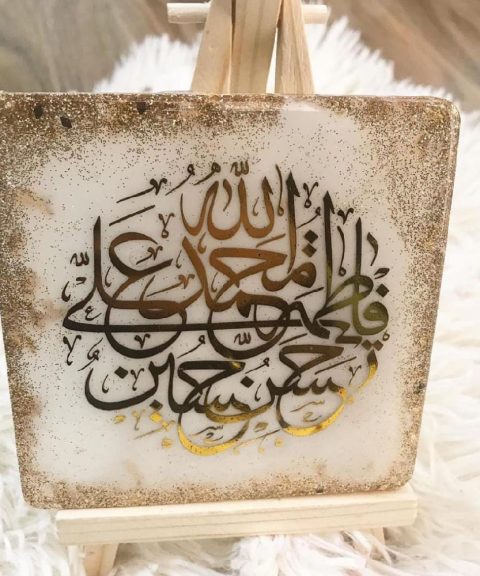 الله
محمد
فاطمة علي
حسن حسین